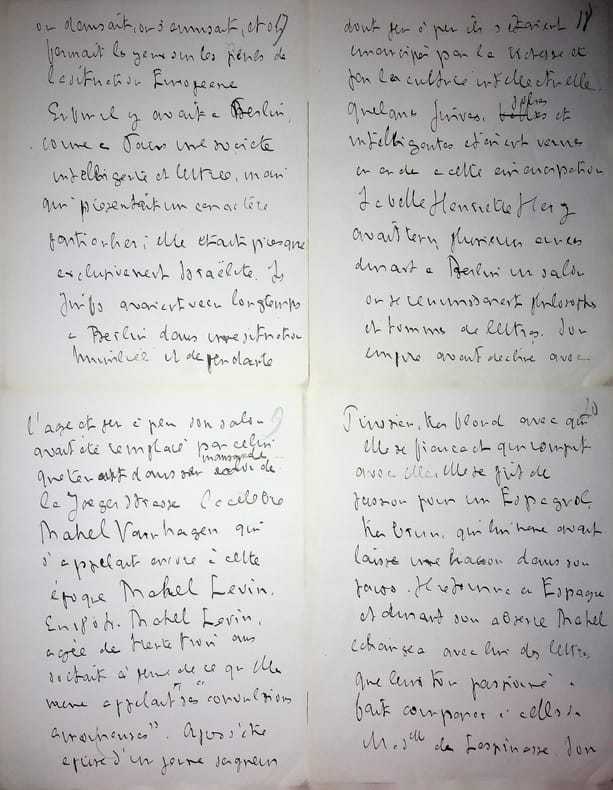 on dansait, on s'amusait, et on 7
fermait les yeux sur les périls de
la situation Européenne
Enfin il y avait à Berlin,
comme à Paris une société
intelligente et lettrée, mais
qui présentait un caractère
particulier; elle était presque
exclusivement Israélite. Les
Juifs avaient vécu longtemps
à Berlin dans une situation
humiliée et dépendante
dont peu à peu ils s'étaient 18
émancipés par la richesse et
par la culture intellectuelle.
Quelques Juives, belles et
intelligentes étaient venues
en aide à cette émancipation
La belle Henriette Herz
avait tenu plusieurs années
durant à Berlin un salon
où se réunissaient philosophes
et hommes de lettres. Son
empire avait décliné avec
l'age et peu à peu son salon 9
avait été remplacé par celui
mansarde
que tenait dans sa de
la Jaeger Strasse la célèbre
Rahel Varnhagen qui
s'appelait encore à cette
époque Rahel Levin.
En 1804. Rahel Levin,
agée de trente trois ans
sortait à peine de ce qu'elle
meme appelait "ses convulsions
amoureuses". Après s'être
éprise d'un jeune seigneur
Prussien, blond avec qui 10
elle se fiança et qui rompit
avec elle, elle se prit de
passion pour un Espagnol,
brun, qui lui meme avait
laissé une liaison dans son
pays. Il retourna en Espagne
et durant son absence Rahel
échangea avec lui des lettres
que leur ton passionné a
fait comparer à celles de
M.elle de Lespinasse. Son